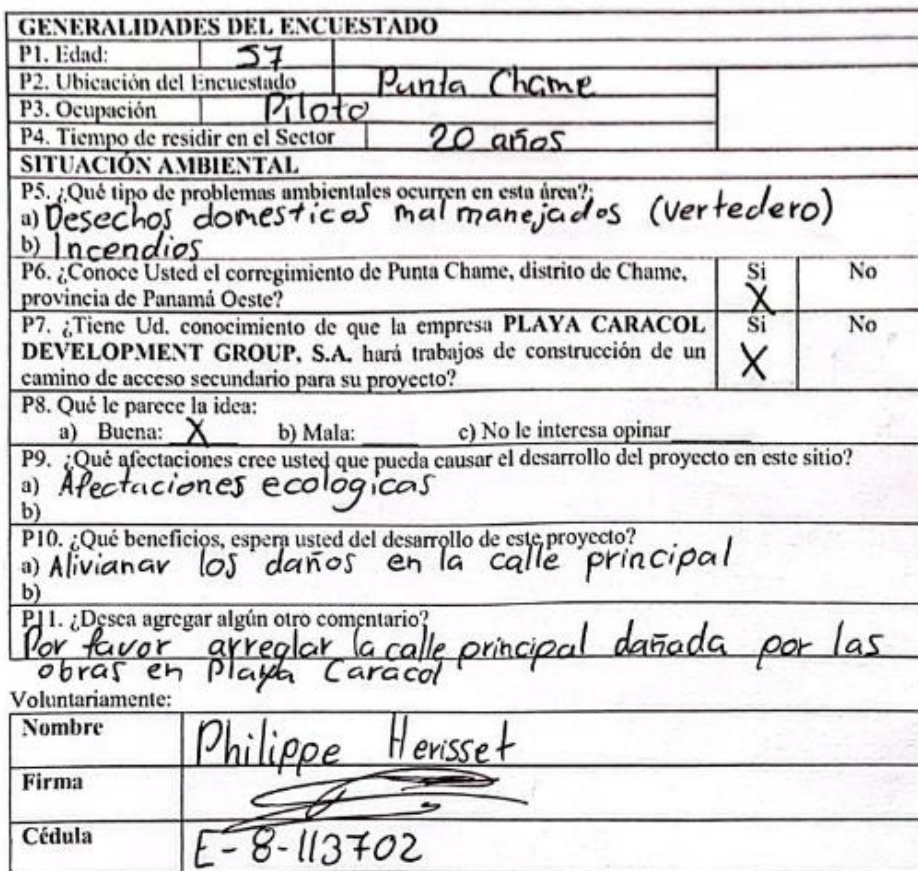 GENERALIDADES DEL ENCUESTADO
P1. Edad: 57
P2. Ubicación del Encuestado Punta Chame
P3. Ocupación Piloto
P4. Tiempo de residir en el Sector 20 años
SITUACIÓN AMBIENTAL
P5. ¿Qué tipo de problemas ambientales ocurren en esta área?:
a) Desechos domesticos mal manejados (vertedero)
b) Incendios
P6. ¿Conoce Usted el corregimiento de Punta Chame, distrito de Chame, Si No
provincia de Panamá Oeste? X
P7. ¿Tiene Ud. conocimiento de que la empresa PLAYA CARACOL Si No
DEVELOPMENT GROUP, S.A. hará trabajos de construcción de un X
camino de acceso secundario para su proyecto?
P8. Qué le parece la idea:
a) Buena: X b) Mala: c) No le interesa opinar
P9. ¿Qué afectaciones cree usted que pueda causar el desarrollo del proyecto en este sitio?
a) Afectaciones ecologicas
b)
P10. ¿Qué beneficios, espera usted del desarrollo de este proyecto?
a) Alivianar los daños en la calle principal
b)
P11. ¿Desea agregar algún otro comentario?
Por favor arreglar la calle principal dañada por las
obras en Playa Caracol
Voluntariamente:
Nombre Philippe Herisset
Firma
Cédula E-8-113702